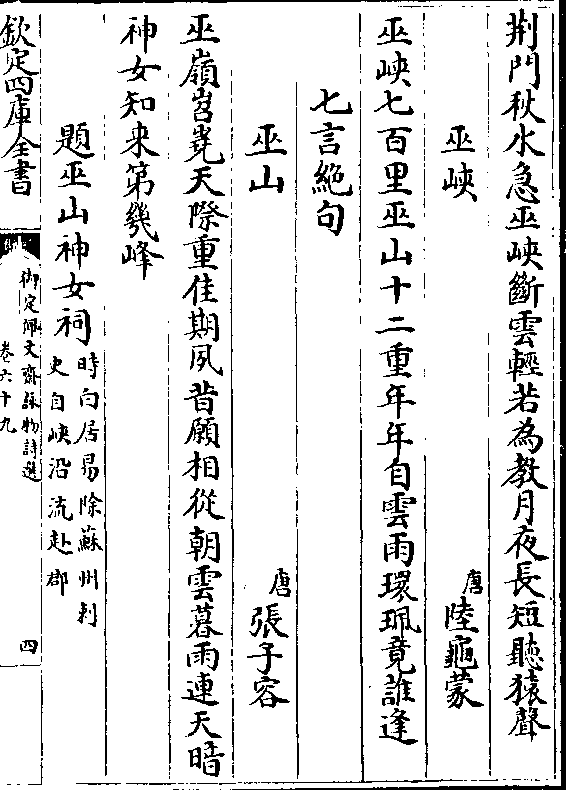 荆門秋水急巫峽斷雲輕若為教月夜長短聽猿聲
巫峽
唐
陸龜蒙
巫峽七百里巫山十二重年年自雲雨環珮竟誰逢
七言絶句
巫山
唐
張子容
巫嶺岧嶤天際重佳期夙昔願相從朝雲暮雨連天暗
神女知来第幾峰
題巫山神女祠
時白居易除蘇州刺
史自峽沿流赴郡
欽定四庫全書
御定佩文齋詠物詩選
卷六十九
四